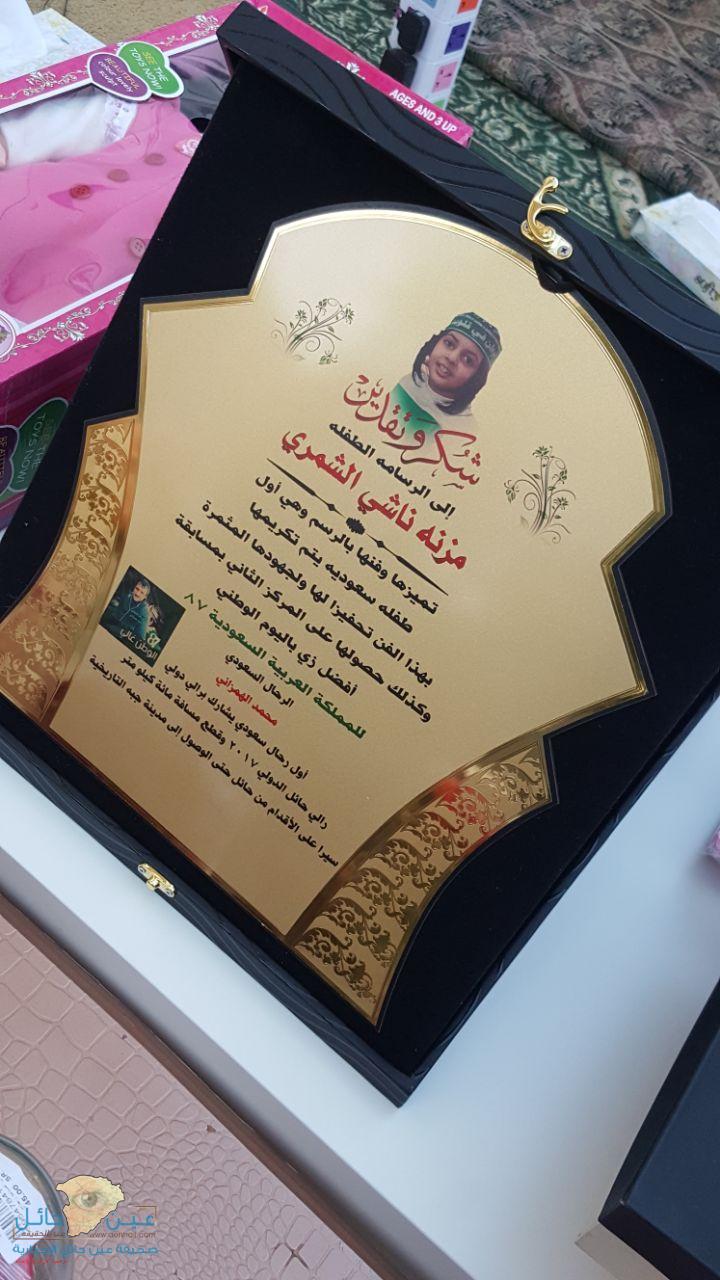 SEE THE
TOYS NOW!
BEAUTIFUL
colour lovely
sculpt
AGES AND 3 UP
شكر وتقدير
إلى الرسامه الطفله
مزنه ناشي الشمري
تميزها وفنها بالرسم وهي أول
طفله سعوديه يتم تكريمها
بهذا الفن تحفيزا لها ولجهودها المثمرة
وكذلك حصولها على المركز الثاني بمسابقة
أفضل زي باليوم الوطني
للمملكة العربية السعودية ٨٧
الوطن غالي
الرحال السعودي
محمد الهمزاني
أول رحال سعودي يشارك برالي دولي
رالي حائل الدولي ٢٠١٧ وقطع مسافة مائة كيلو متر
سيرا على الأقدام من حائل حتى الوصول إلى مدينة جبه التاريخية
45.00 SR
عين حائل
صحيفة عين حائل الإخبارية